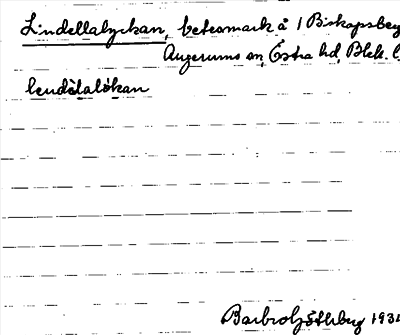 Lindellalyckan, betesmark å 1 Biskopsberg
Augerums sn, Östra hd, Blek. l.
lendølaløkan
Barbro Göthberg 1931